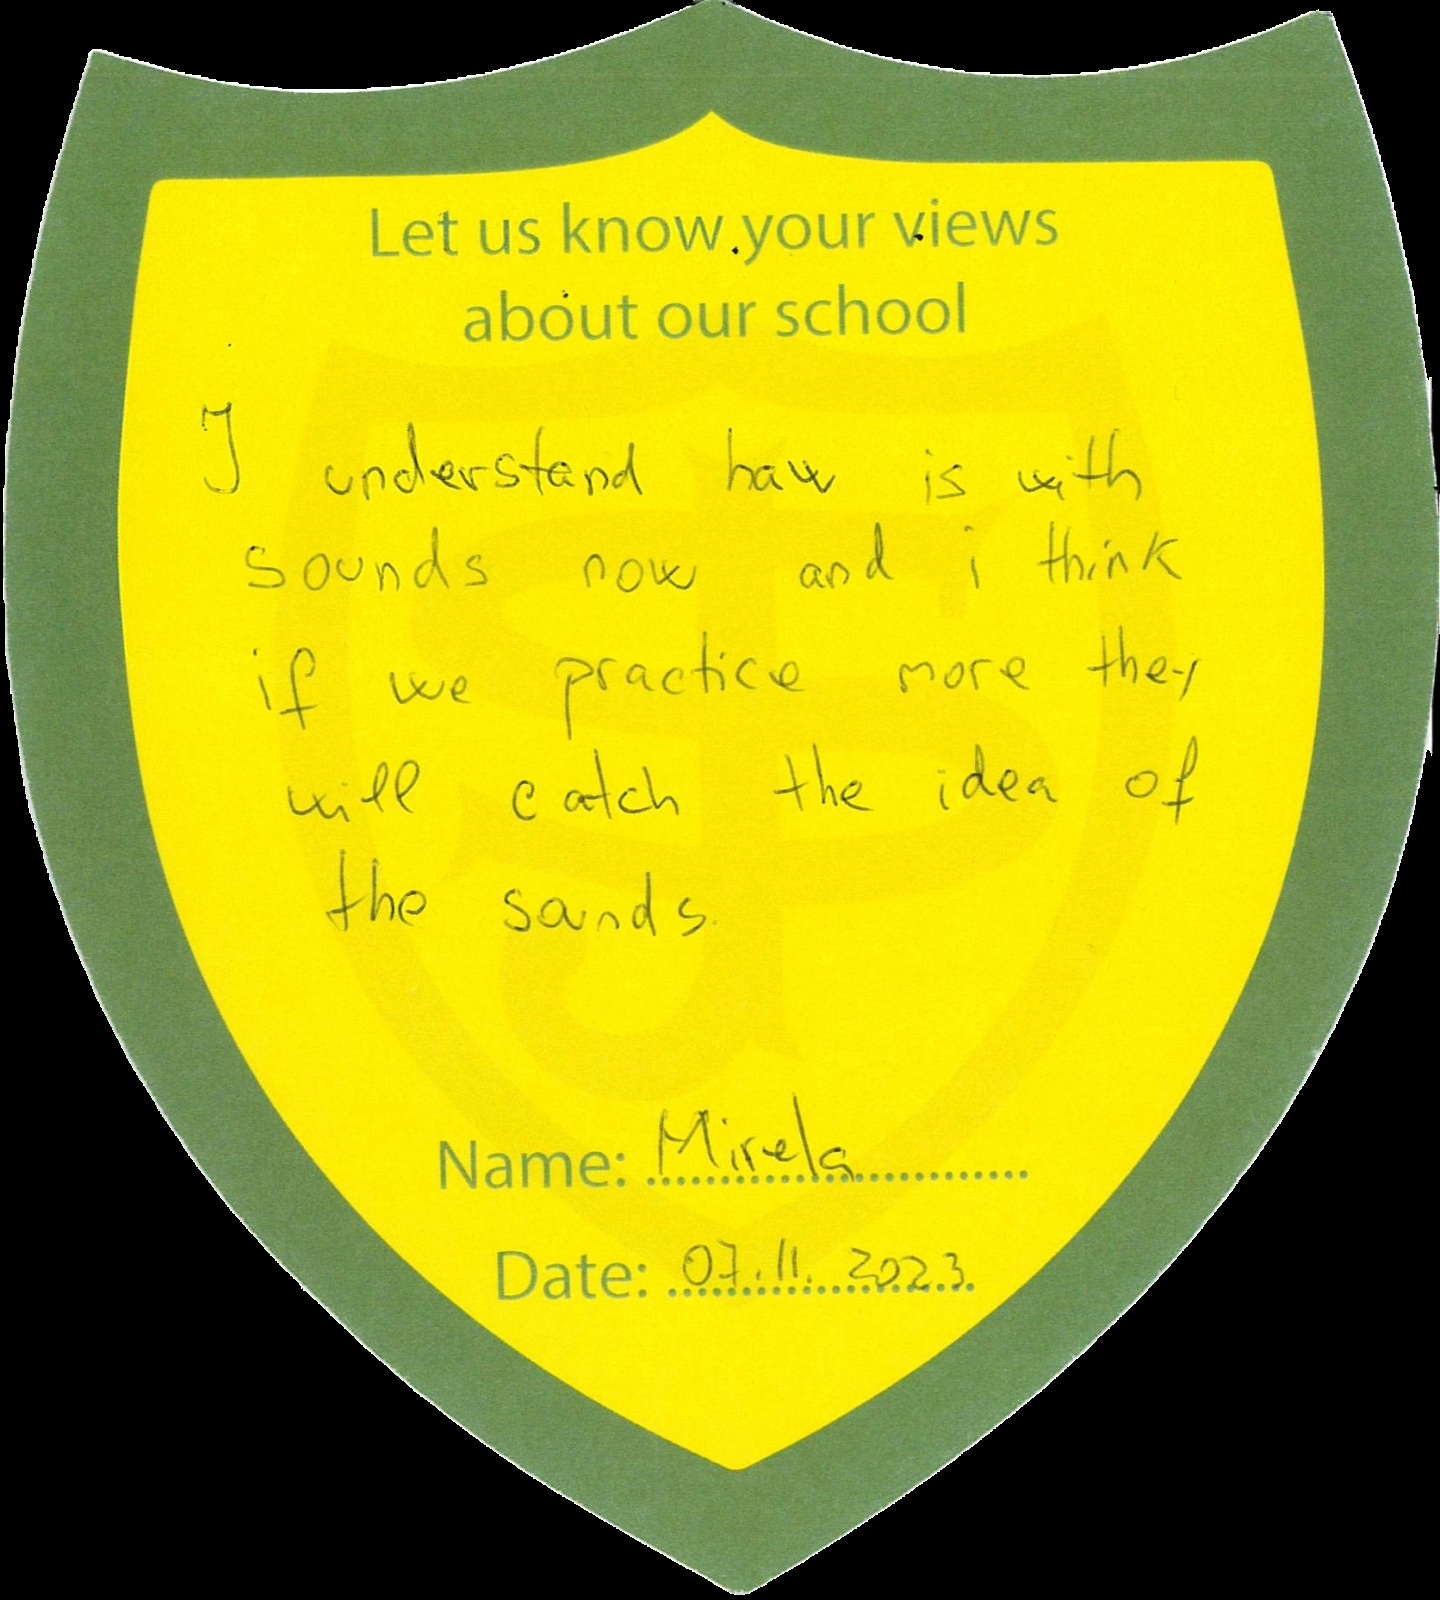 Let us know your views
about our school
I understand haw is with
sounds now and i think
if we practice more they
will catch the idea of
the sounds.
Name: Mirela
Date: 07.11.2023.